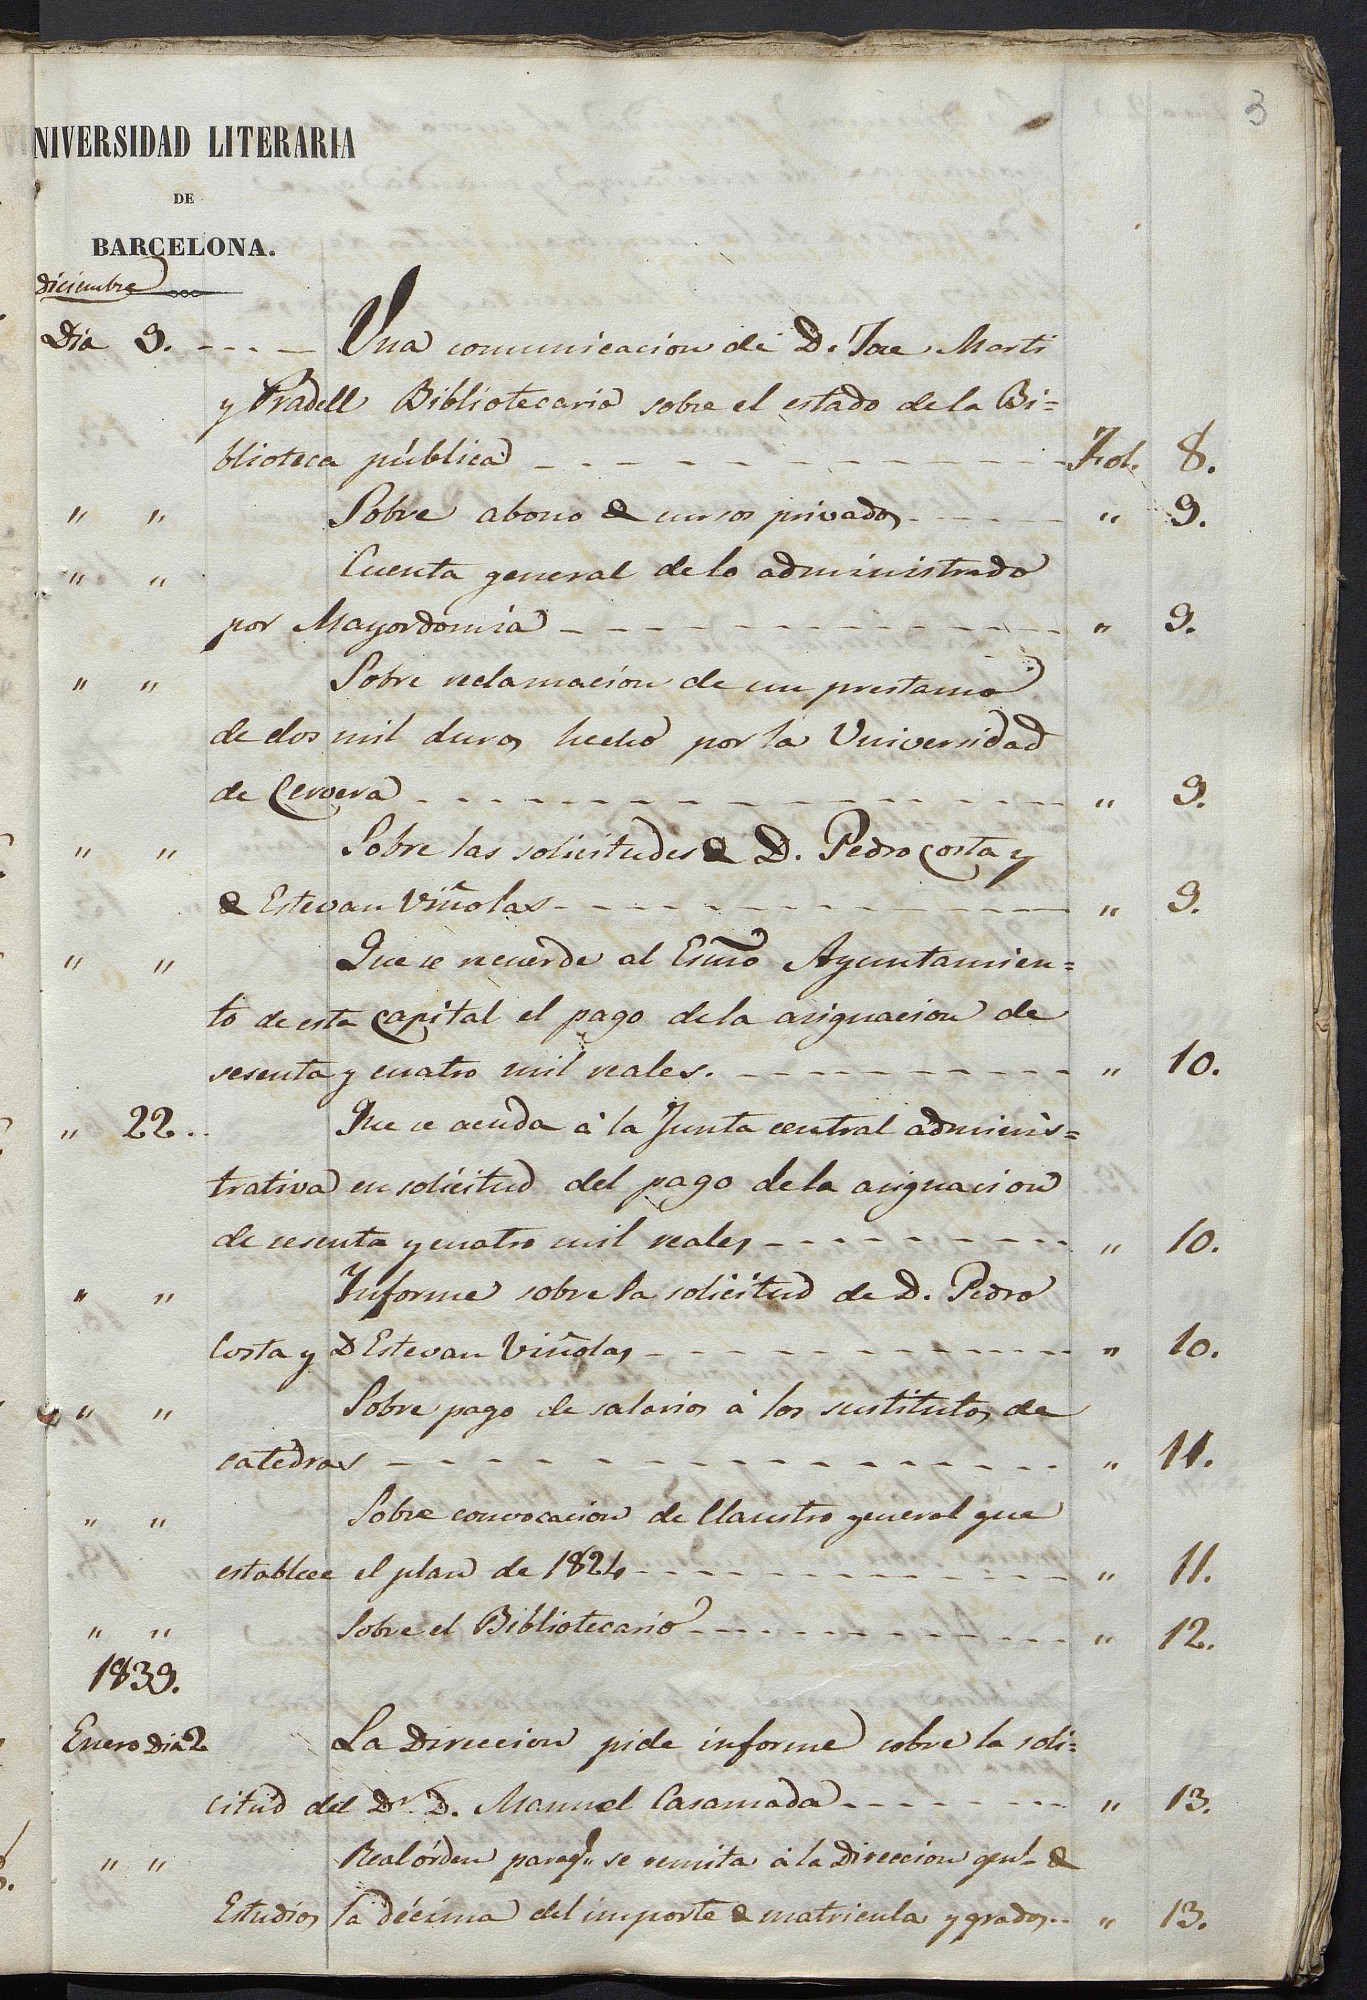 3
NIVERSIDAD LITERARIA
DE
BARCELONA.
diciembre
Dia 9. - - - - Una comunicacion de D. Jose Marti
y Pradell Bibliotecario sobre el estado de la Bi=
blioteca pública - - - - - - - - - - Fol. 8.
" " Sobre abono de cursos privados - - - - - " 9.
" " Cuenta general de lo administrado
por Mayordomia - - - - - - - - - - " 9.
" " Sobre reclamacion de un prestamo
de dos mil duros hecho por la Universidad
de Cervera - - - - - - - - - - " 9.
" " Sobre las solicitudes de D. Pedro Costa y
de Estevan Viñolas - - - - - - - - - - " 9.
" " Que se recuerde al Exmo Ayuntamien=
to de esta Capital el pago de la asignacion de
sesenta y cuatro mil reales. - - - - - - - - - - " 10.
" 22.. Que se acuda à la Junta central adminis=
trativa en solicitud del pago de la asignacion
de sesenta y cuatro mil reales - - - - - - - - " 10.
" " Informe sobre la solicitud de D. Pedro
Costa y D Estevan Viñolas - - - - - - - - - - " 10.
" " Sobre pago de salarios à los sustitutos de
catedras - - - - - - - - - - " 11.
" " Sobre convocacion de Claustro general que
establece el plan de 1824 - - - - - - - - - - " 11.
" " Sobre el Bibliotecario - - - - - - - - - - " 12.
1839.
Enero Dia 2 La Direccion pide informe sobre la soli=
citud del Dr. D. Manuel Casamada - - - - - - - " 13.
" " Real órden para q.e se remita à la Direccion genl de
Estudios la décima del importe de matricula y grados.. " 13.